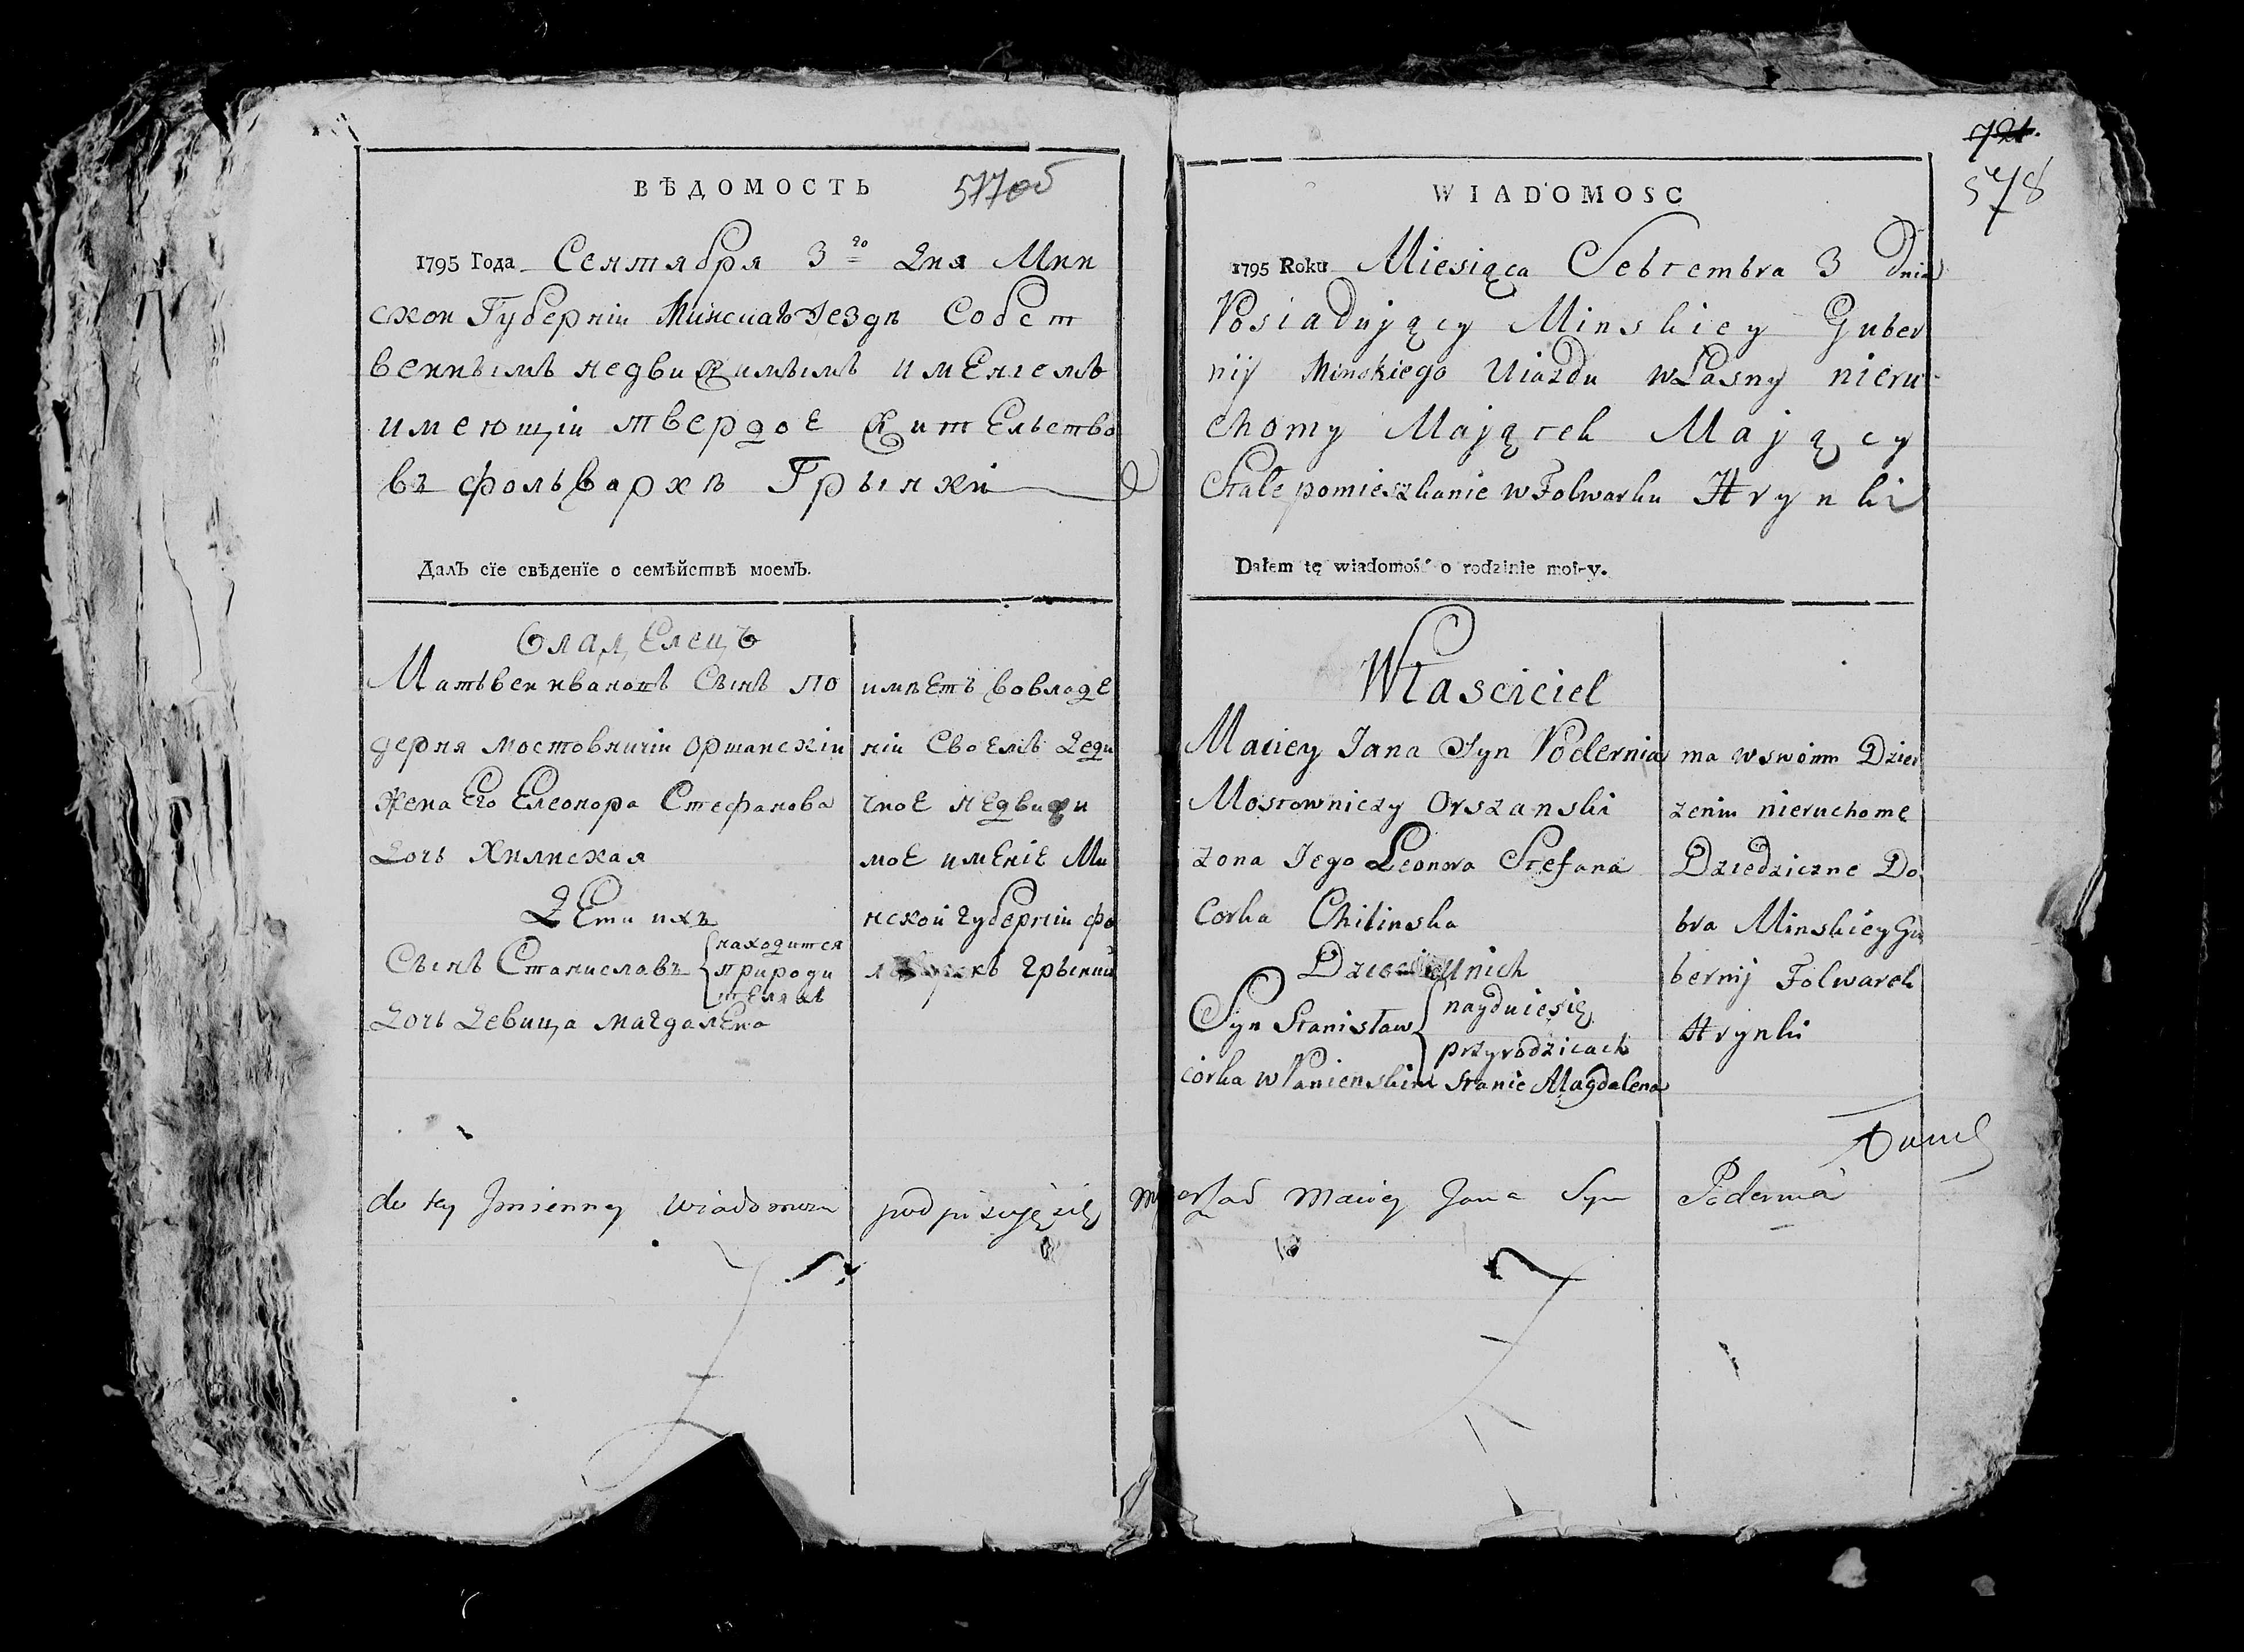 ВѢДОМОСТЬ 577об
1795 Года Сентября 3го Дня Мин
ской Губерніи Минскаго Уезда Собст
веннымъ недвижимымъ имЕніемъ
имеющіи твердоЕ житЕльство
въ фольваркѣ Грынки
ДалЪ сїе свѣденїе о семѣйствѣ моемЪ.
ВладЕлецъ
Матѣеи ивановъ Сынъ По
дерня мостовничіи оршанскіи
Жена Его Елеонора Стефанова
Дочь Хилинская
ДЕти ихъ
Сынъ Станиславъ
находится
при роди
тЕляхъ
Дочь Девица магдалЕна
имѣЕтъ вовладЕ
ніи СвоЕмъ Деди
чноЕ нЕдвижи
моЕ имЕніЕ Ми
нской губерніи фо
грынки
721.
578
WIADOMOSC
1795 Roku Miesiąca Sebtembra 3 Dnia
Posiadujący Minskiey Guber
nij Minskiego Uiazdu wLasny nieru
chomy Mająтek Mający
Stałe pomieszkanie w Folwarku Hrynki
Dałem tę wiadomość o rodzinie moiey.
Własciciel
Maciey Jana Syn Podernia
Mostowniczy Orszanski
zona Jego Leonora Stefana
Corka Chilinska
nich
Syn Stanisław
nayduiesię
przyrodzicach
córka w Panienskim stanie Magdalena
ma w swoim Dzier
zeniu nieruchome
Dziedziczne Do
bra Minskiey Gu
bernij Folwarek
Hrynki
do tey Jmienney Wiadomosci podpisuję się Maciey Jana Syn Podernia